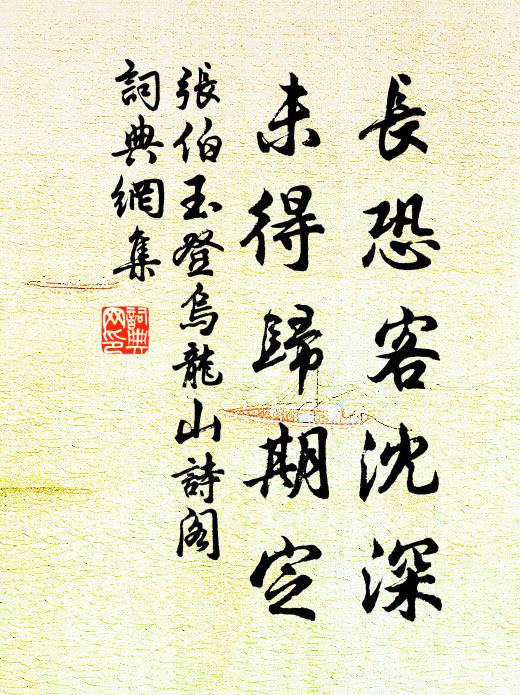 長恐客沈深
未得歸期定
張伯玉登烏龍山詩閣
詞典網集
詞典
网印